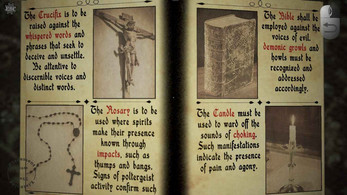 The Crucifix is to be
raised against the
whispered words and
phrases that seek to
deceive and unsettle.
Be attentive to
discernible voices and
distinct words.
The Rosary is to be
used where spirits
make their presence
known through
impacts, such as
thumps and bangs.
Signs of poltergeist
activity confirm such
The Bible shall be
employed against the
voices of evil.
demonic growls and
howls must be
recognized and
addressed
accordingly.
The Candle must be
used to ward off the
sounds of choking.
Such manifestations
indicate the presence
of pain and agony.